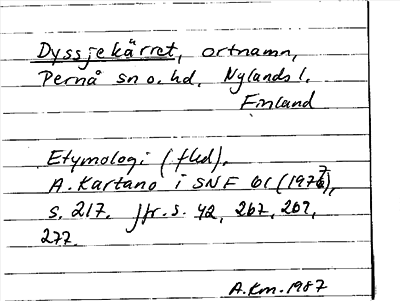 Dyssjekärret, ortnamn,
Pernå sn o. hd, Nylands l.
Finland
Etymologi (fled).
A. Kartano i SNF 61 (1977),
s. 217. Jfr. s. 42, 267, 269,
277.
A.Km. 1987